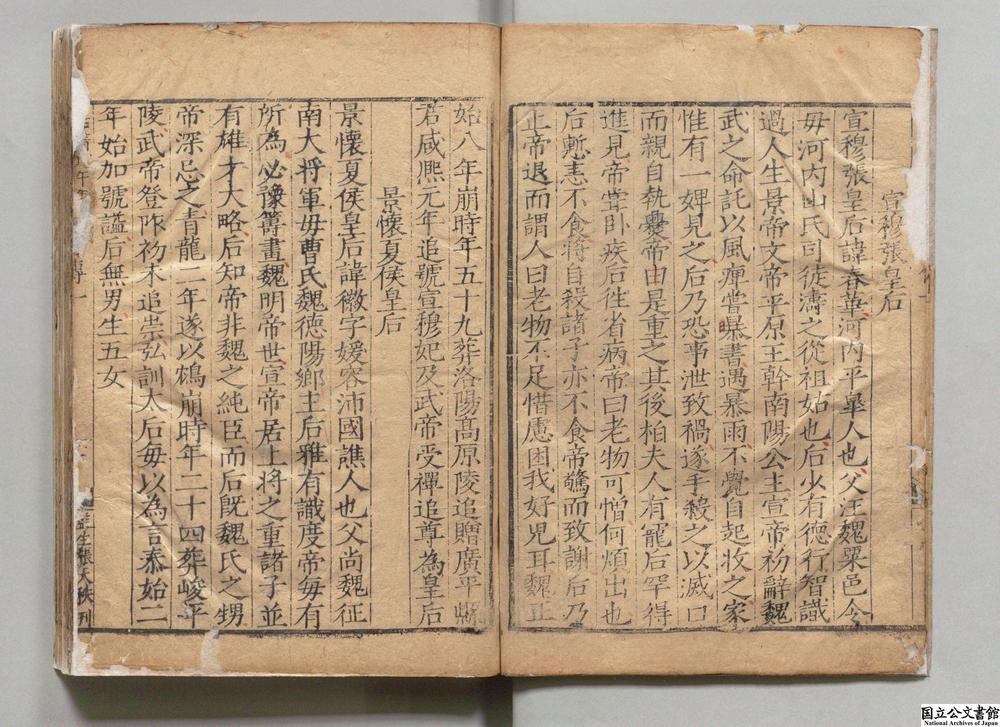 宣穆張皇后
宣穆張皇后諱春華河內平臯人也父汪魏粟邑令
母河內山氏司徒濤之從祖姑也后少有德行智識
過人生景帝文帝平原王幹南陽公主宣帝初辭魏
武之命託以風痺嘗暴書遇暴雨不覺自起收之家
惟有一婢見之后乃恐事泄致禍遂手殺之以滅口
而親自執爨帝由是重之其後柏夫人有寵后罕得
進見帝嘗卧疾后徃省病帝曰老物可憎何煩出也
后慙恚不食將自殺諸子亦不食帝驚而致謝后乃
止帝退而謂人曰老物不足惜慮困我好兒耳魏正
始八年崩時年五十九葬洛陽高原陵追贈廣平縣
君咸熈元年追號宣穆妃及武帝受禪追尊為皇后
景懷夏侯皇后
景懷夏侯皇后諱徽字媛容沛國譙人也父尚魏征
南大將軍母曹氏魏德陽鄉主后雅有識度帝每有
所為必豫籌畫魏明帝世宣帝居上將之重諸子並
有雄才大略后知帝非魏之純臣而后旣魏氏之甥
帝深忌之青龍二年遂以鴆崩時年二十四葬峻平
陵武帝登阼初未追崇弘訓太后每以為言泰始二
年始加號謚后無男生五女
傳一
監生張大 刊
国立公文書館
National Archives of Japan